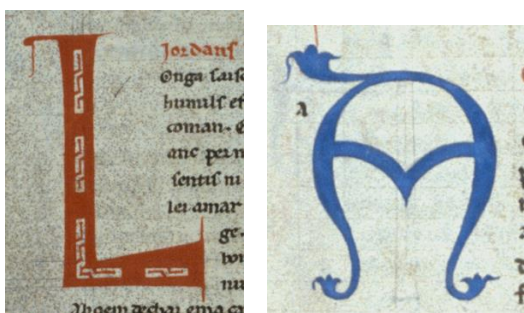 L
Jordanſ
Onga ſaiſo
humilſ et
coman. E
anc per n
ſentiſ ni
lei amar
ge.
bon
nu
A
a